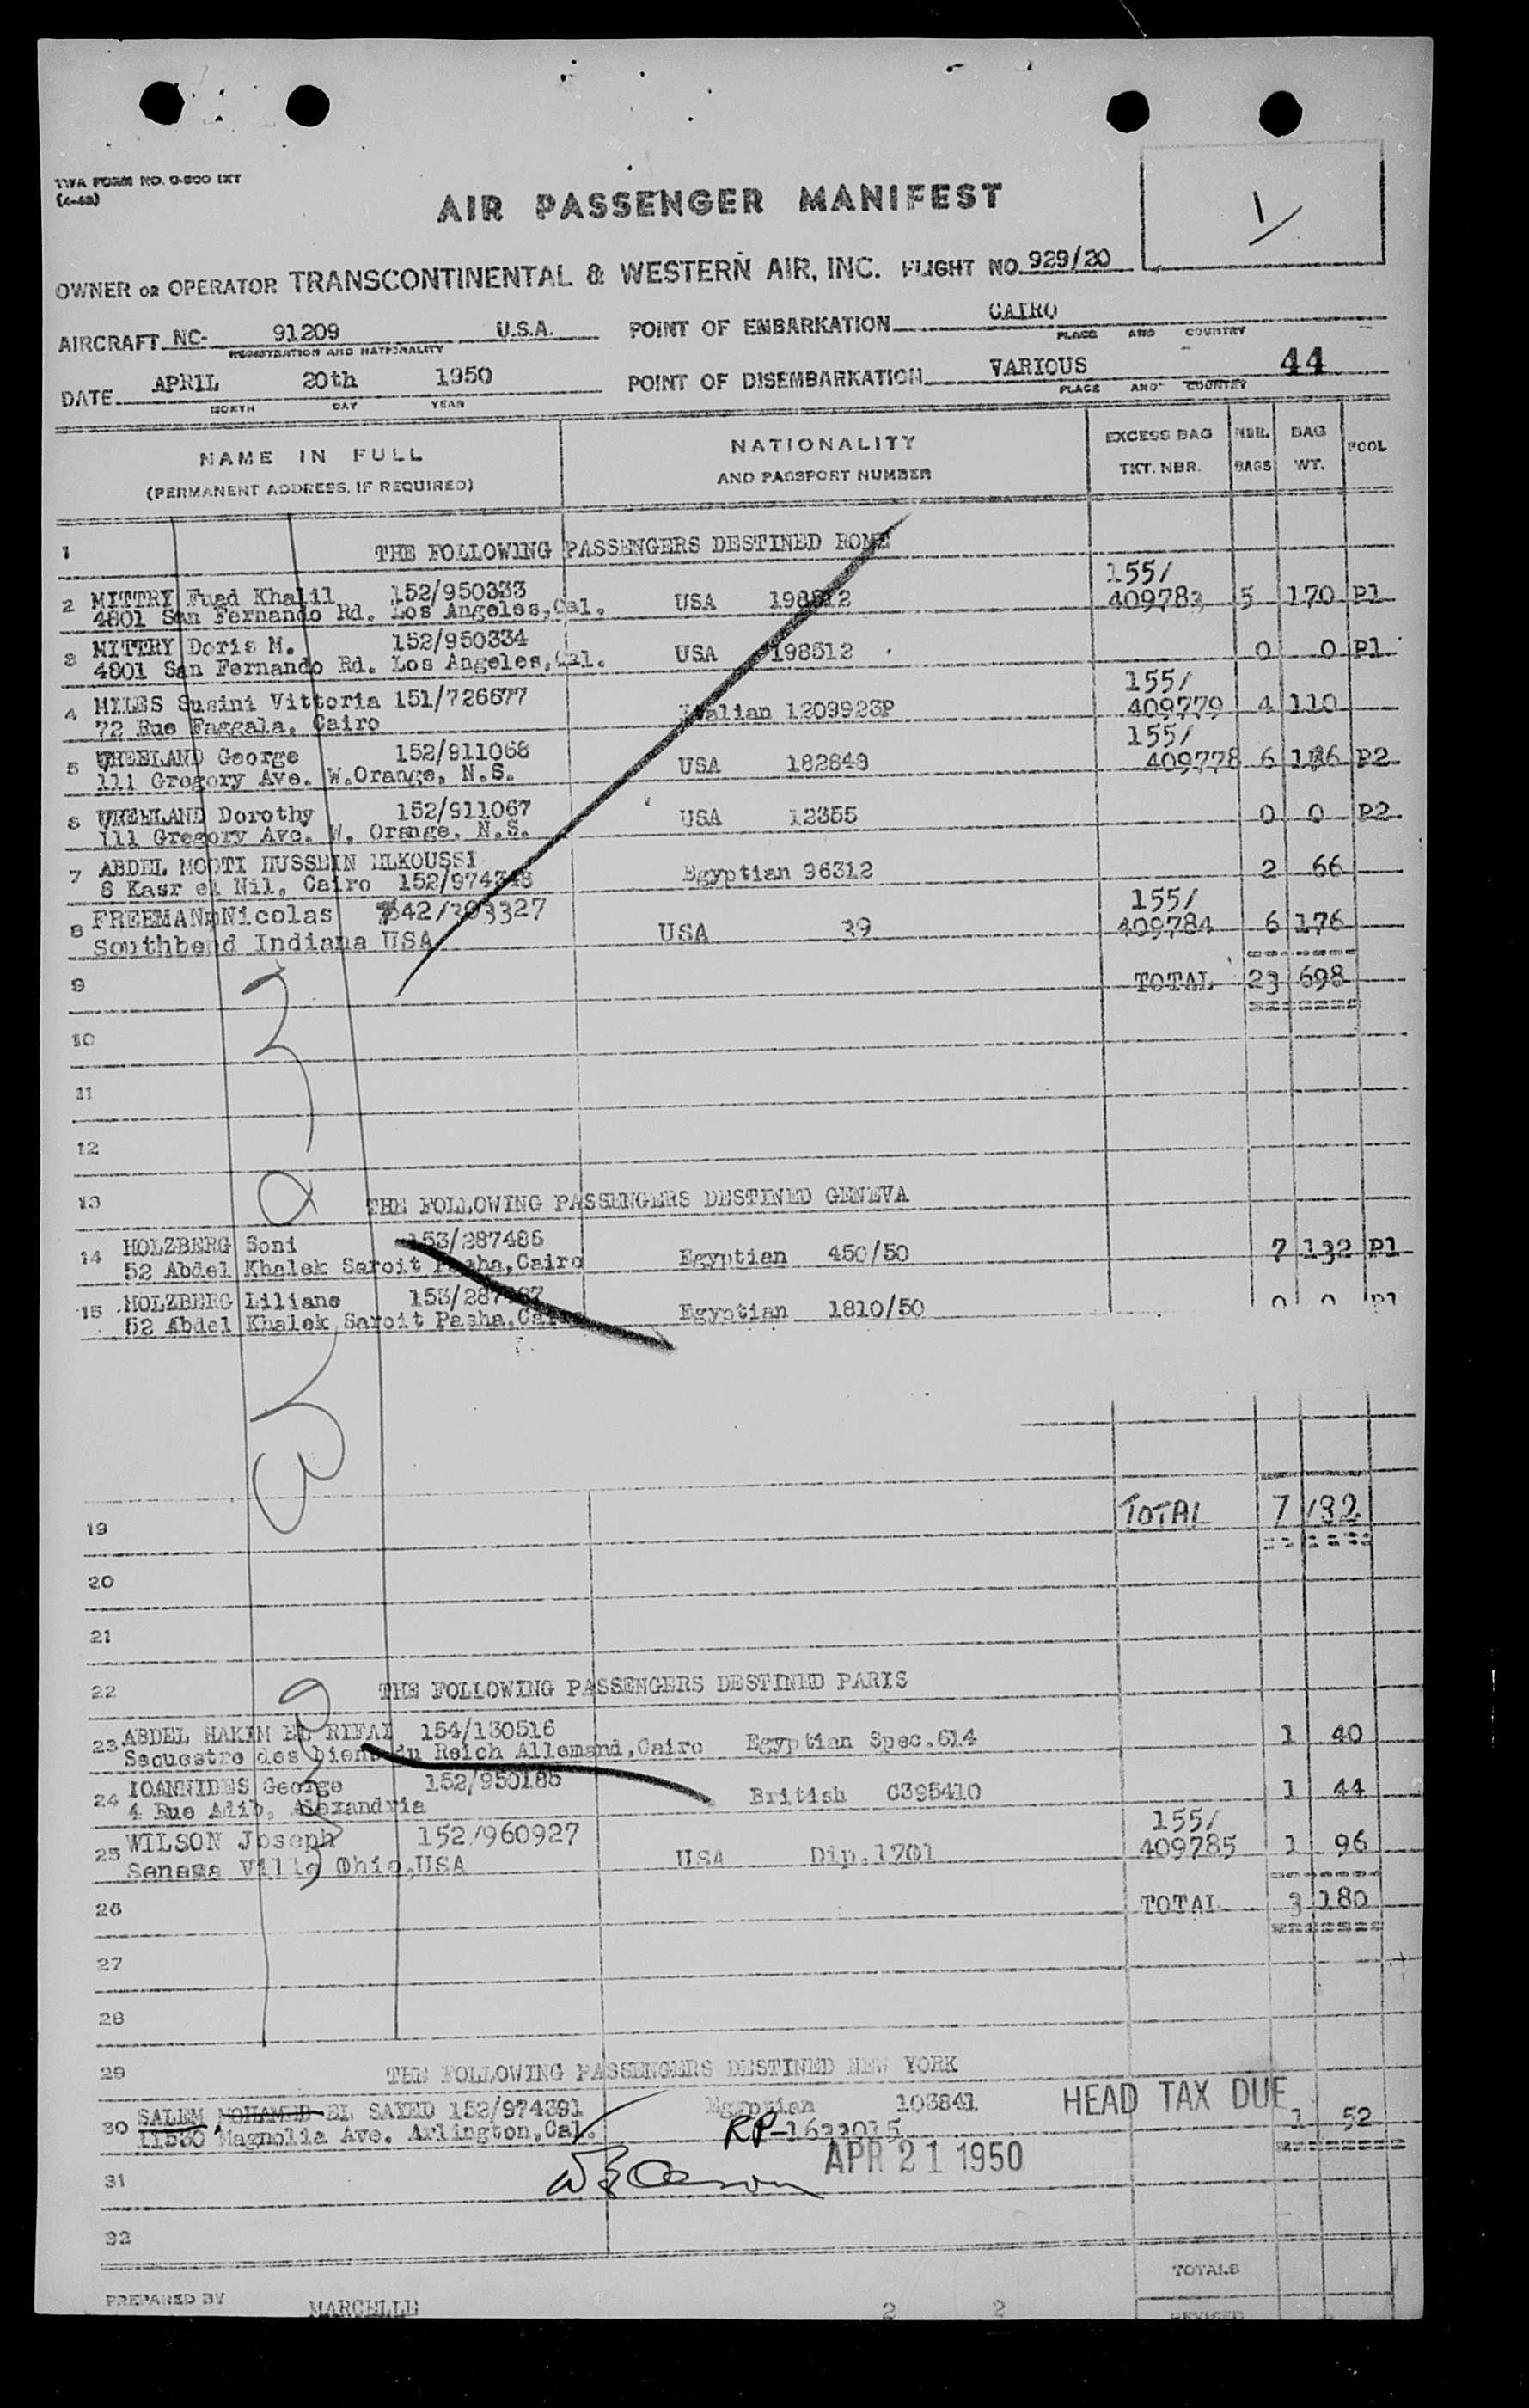 TWA FORM NO. O-800 IXT
(4-48)
1/
AIR PASSENGER MANIFEST
OWNER OR OPERATOR TRANSCONTINENTAL & WESTERN AIR, INC. FLIGHT NO. 929/20
AIRCRAFT NC- 91209 U.S.A. POINT OF EMBARKATION CAIRO
REGISTRATION AND NATIONALITY PLACE AND COUNTRY
DATE APRIL 20th 1950 POINT OF DISEMBARKATION VARIOUS 44
MONTH DAY YEAR PLACE AND COUNTRY
NAME IN FULL NATIONALITY EXCESS BAG NBR. BAG POOL
(PERMANENT ADDRESS, IF REQUIRED) AND PASSPORT NUMBER TKT. NBR. BAGS WT.
1 THE FOLLOWING PASSENGERS DESTINED ROME
155/
2 MITTRY Fuad Khalil 152/950333 USA 409783 5 170 P1
4801 San Fernando Rd. Los Angeles,Cal.
3 MITTRY Doris M. 152/950334 USA 198512 0 0 P1
4801 San Fernando Rd. Los Angeles,Cal.
155/
4 MILES Susini Vittoria 151/726677 Italian 1209923P 409779 4 110
72 Rue Faggala, Cairo
155/
5 George 152/911068 USA 182848 409778 6 P2
111 Gregory Ave. W.Orange, N.S.
6 Dorothy 152/911067 USA 12355 0 0 P2
111 Gregory Ave. W. Orange, N.S.
7 ABDEL MOOTI HUSSEIN ELKOUSSI Egyptian 96312 2 66
8 Kasr el Nil, Cairo 152/974348
155/
8 FREEMAN Nicolas USA 39 409784 6 176
Southbend Indiana USA
9 TOTAL 23 698
10
11
12
13 THE FOLLOWING PASSENGERS DESTINED GENEVA
14 HOLZBERG Soni 153/287486 Egyptian 450/50 7 132 P1
52 Abdel Khalek Saroit Pasha,Cairo
15 HOLZBERG Liliane Egyptian 1810/50 0 0 P1
52 Abdel Khalek Saroit Pasha,Cairo
19 TOTAL 7 132
20
21
22 THE FOLLOWING PASSENGERS DESTINED PARIS
23 ABDEL HAKIM EL RIFAI 154/130516 Egyptian Spec.614 1 40
Sequestre des biens du Reich Allemand,Cairo
24 IOANNIDES George 152/950185 British C395410 1 44
4 Rue Adib, Alexandria
155/
25 WILSON Joseph 152/960927 USA Dip.1701 409785 1 96
Senama Ville Ohio,USA
26 TOTAL 3 180
27
28
29 THE FOLLOWING PASSENGERS DESTINED NEW YORK
30 SALEM MOHAMED EL SAYED 152/974391 Egyptian 103841 HEAD TAX DUE 1 52
11530 Magnolia Ave. Arlington,Cal. RP-1622015
APR 21 1950
31
32
TOTALS
PREPARED BY MARCELLE 2 2 REVISED